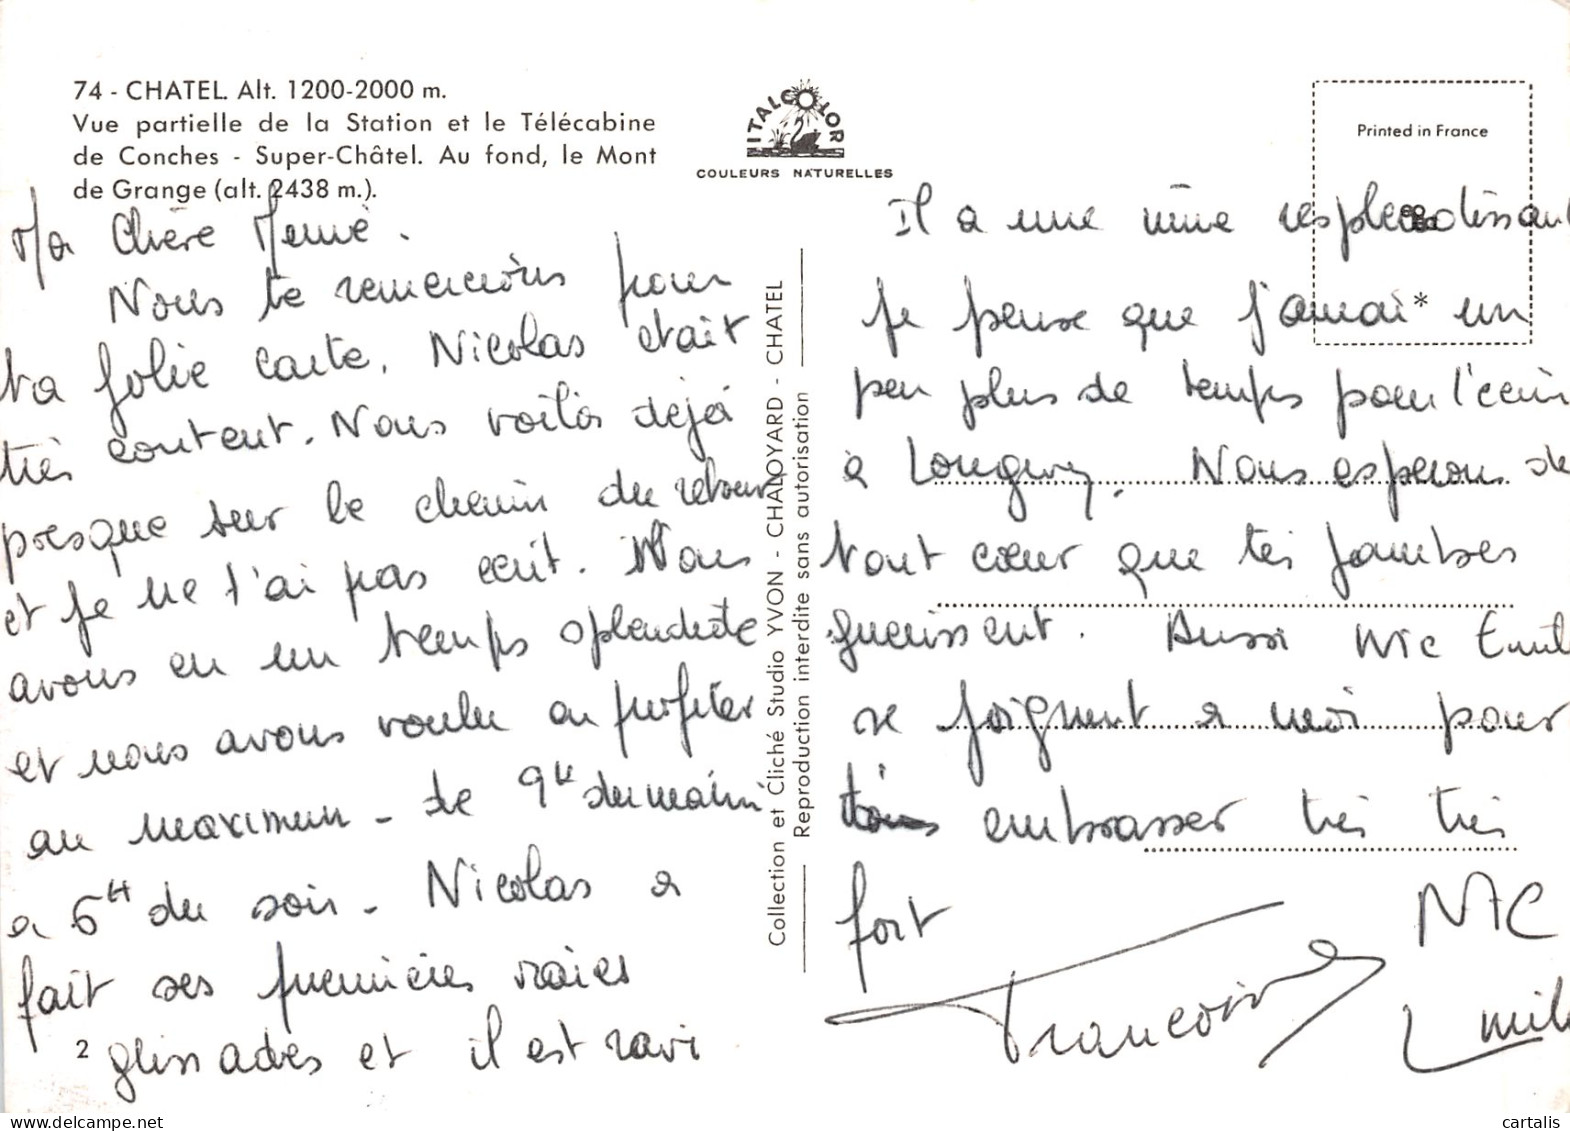 74 - CHATEL. Alt. 1200-2000 m.
Vue partielle de la Station et le Télécabine
de Conches - Super-Châtel. Au fond, le Mont
de Grange (alt. 2438 m.).
ITALCOLOR
COULEURS NATURELLES
Printed in France
Ma Chère Mémé.
Nous te remercions pour
ta jolie carte. Nicolas était
très content. Nous voilà déjà
presque sur le chemin du retour
et je ne t'ai pas écrit. Nous
avons eu un temps splendide
et nous avons voulu en profiter
au maximum - de 9H du matin
a 6H du soir - Nicolas a
fait ses premières vraies
glissades et il est ravi
2
Collection et Cliché Studio YVON - CHALOYARD - CHATEL
Reproduction interdite sans autorisation
Il a une mine resplendissant
Je pense que j'aurai * un
peu plus de temps pour t'écrire
à Longwy. Nous esperons de
tout cœur que tes jambes
guerissent. Aussi Nic Emile
se joignent a moi pour
embrasser très très
fort
NIC
Francoise
Emile
cartalis